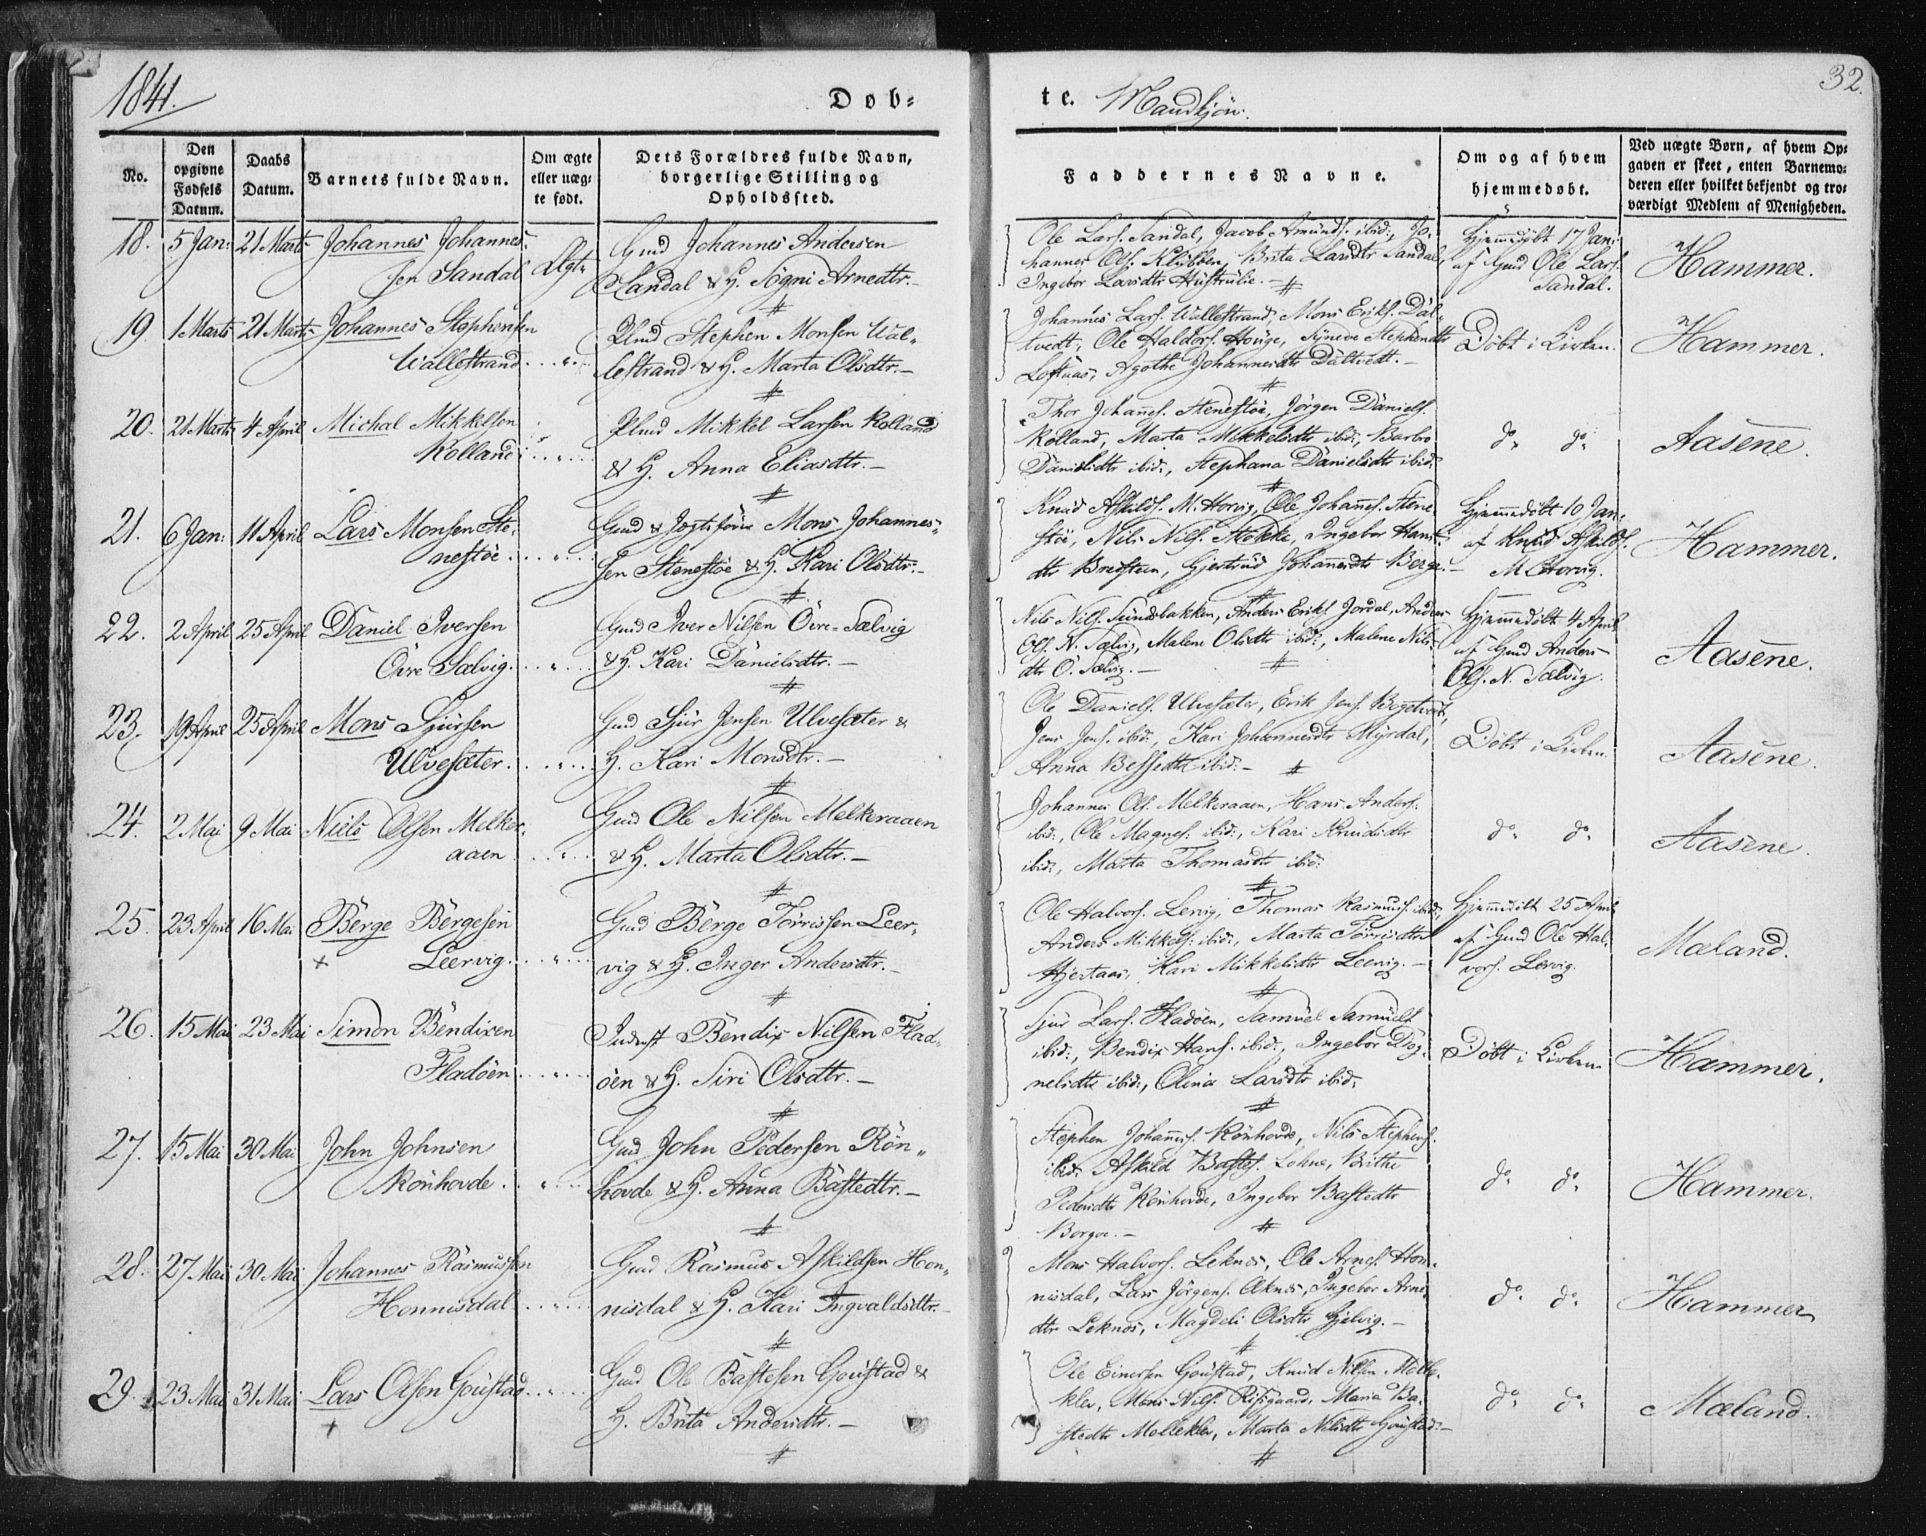 1841.
Døb-
te. Mandkjön.
32.
No.
Den opgivne Fødsels Datum.
Daabs Datum.
Barnets fulde Navn.
Om ægte eller uægte født.
Dets Forældres fulde Navn, borgerlige Stilling og Opholdssted.
Faddernes Navne.
Om og af hvem hjemmedøbt.
Ved uægte Børn, af hvem Opgaven er skeet, enten Barnemoderen eller hvilket bekjendt og troværdigt Medlem af Menigheden.
18. 5 Jan: 21 Marts Johannes Johannes-
sen Sandal Ægte
Gmd Johannes Andersen
Sandal & H. Sögni Arnedtr.-
Ole Lars. Sandal, Jacob Amunds. ibid:, Jo-
hannes Ols. Klubben, Brita Larsdtr Sandal,
Ingebor Larsdtr
Hjemmedöbt 17 Jan:
af Gmd Ole Lars.
Sandal.
Hammer.
19. 1 Marts 21 Marts Johannes Stephensen
Wallestrand
Stephen Monsen Wal-
lestrand & H. Marta Olsdtr.-
Johannes Lars. Wallestrand, Mons Eriks. Dal-
tvedt, Ole Haldors. Houge, Synneve Stephensdtr
Loftaas, Agothe Johannesdtr Daltvedt.-
Döbt i Kirken.
Hammer.
20. 21 Marts 4 April Michal Mikkelsen
Kolland
Mikkel Larsen Kolland
& H. Anna Eliasdtr.-
Thor Johans. Stenestöe, Jörgen Daniels.
Kolland, Marta Mikkelsdtr ibid:, Barbro
Danielsdtr ibid:, Stephana Danielsdtr ibid:
do do
Aasene.
21. 6 Jan: 11 April Lars Monsen Ste-
nestöe
Gmd & Jægtsfører Mons Johannes-
sen Stenestöe & H. Kari Olsdtr.-
Knud Askilds. M. Horvig, Ole Johans. Stene-
stöe, Nils Nils. Stekke, Ingebor Hans-
dtr Bredsteen, Gjertrud Johannesdtr Berge.-
Hjemmedöbt 10 Jan:
af Knud Askilds.
M. Horvig.
Hammer.
22. 2 April 25 April Daniel Iversen
Övre Sælvig.
Gmd Iver Nilsen Övre-Sælvig
& H. Kari Danielsdtr.-
Nils Nils. Sundsbakken, Anders Eriks. Jordal, Anders
Ols. N. Sælvig, Malene Olsdtr ibid:, Malene Nils-
dtr O. Sælvig.-
Hjemmedöbt 4 April
af Gmd Anders
Ols. N. Sælvig.
Aasene.
23. 19 April 25 April Mons Sjursen
Ulvesæter.
Gmd Sjur Jensen Ulvesæter &
H. Kari Monsdtr.-
Ole Daniels. Ulvesæter, Erik Jens. Bogetvedt,
Jens Jens. ibid:, Kari Johannesdtr Myrdal,
Anna ibid:-
Döbt i Kirken.
Aasene.
24. 2 Mai 9 Mai Niels Olsen Melker-
aaen
Gmd Ole Nilsen Melkeraaen
& H. Marta Olsdtr.-
Johannes Ols. Melkeraaen, Hans Anders.
ibid:, Ole Magnes. ibid:, Kari Knudsdtr
ibid:, Marta Thomasdtr ibid:
do do
Aasene.
25. 23 April 16 Mai Berge Bergesen
+ Leervig.
Gmd Berge Torrissen Leer-
vig & H. Inger Andersdtr.-
Ole Halvors. Lervig, Thomas Rasmus. ibid:,
Anders Mikkels. ibid:, Marta Torrisdtr
Hjertaas, Kari Mikkelsdtr Leervig.-
Hjemmedöbt 25 April
af Gmd Ole Hal-
vors. Lervig.
Mæland.
26. 15 Mai 23 Mai Simon Bendixen
Fladöen
Inderst Bendix Nilsen Flad-
öen & H. Siri Olsdtr.-
Sjur Lars. Fladöen, Samuel Samuels.
ibid:, Bendix Hans. ibid:, Ingebor Dög-
nelsdtr ibid:, Olina Larsdtr ibid:
Döbt i Kirken
Hammer.
27. 15 Mai 30 Mai John Johnsen
Rönhovde.
Gmd John Pedersen Rön-
hovde & H. Anna Bastedtr.-
Stephen Johannes. Rönhovde, Nils Stephens.
ibid: Askild Bastes. Lohne, Brithe
Pedersdtr Rönhovde, Ingebor Bastedtr
Borgoe.-
do do
Hammer.
28. 27 Mai 30 Mai Johannes Rasmussen
Honnisdal
Gmd Rasmus Askildsen Hon-
nisdal & H. Kari Ingvaldsdtr.-
Mons Halvors. Leknes, Ole Arnes. Hon-
nisdal, Lars Jörgens. Aknes, Ingebor Arne-
dtr Leknes, Magdeli Olsdtr Gjelvig.-
do do
Hammer
29. 23 Mai 31 Mai Lars Olsen Goustad
+
Gmd Ole Bastesen Goustad &
H. Brita Andersdtr.-
Ole Einersen Goustad, Knud Nilsen Molle-
klev, Mons Nils. Risgaard, Maria Ba-
stedtr Molleklev, Marta Nilsdtr Goustad.-
do do
Mæland.